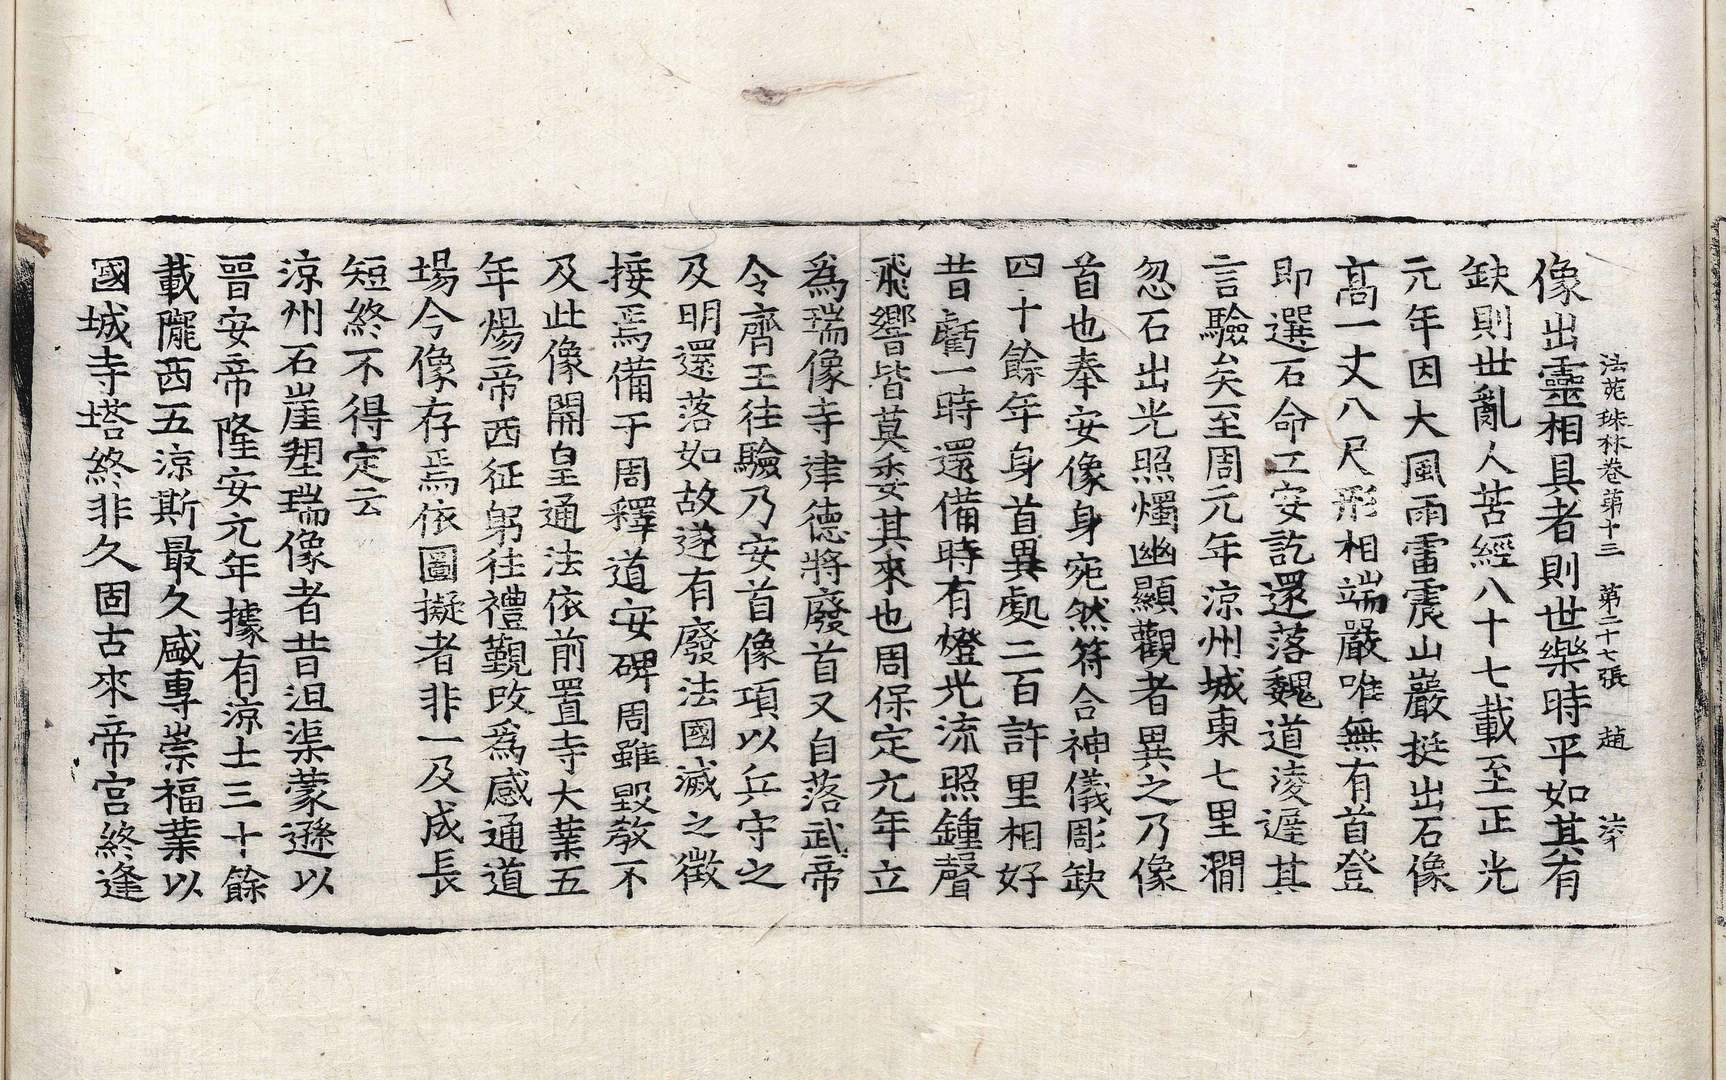 法苑珠林卷第十三　第二十七張　趙
像出靈相具者則世樂時平如其有
缺則世亂人苦經八十七載至正光
元年因大風雨雷震山巖挺出石像
高一丈八尺形相端嚴唯無有首登
即選石命工安訖還落魏道淩遲其
言驗矣至周元年涼州城東七里澗
忽石出光照燭幽顯觀者異之乃像
首也奉安像身宛然符合神儀彫缺
四十餘年身首異處二百許里相好
昔虧一時還備時有燈光流照鍾聲
飛響皆莫委其來也周保定元年立
爲瑞像寺建德將廢首又自落武帝
令齊王往驗乃安首像項以兵守之
及明還落如故遂有廢法國滅之徵
接焉備于周釋道安碑周雖毀教不
及此像開皇通法依前置寺大業五
年煬帝西征躬往禮覲改爲感通道
場今像存焉依圖擬者非一及成長
短終不得定云
涼州石崖塑瑞像者昔沮渠蒙遜以
晉安帝隆安元年據有涼土三十餘
載隴西五涼斯最久盛專崇福業以
國城寺塔終非久固古來帝宮終逢